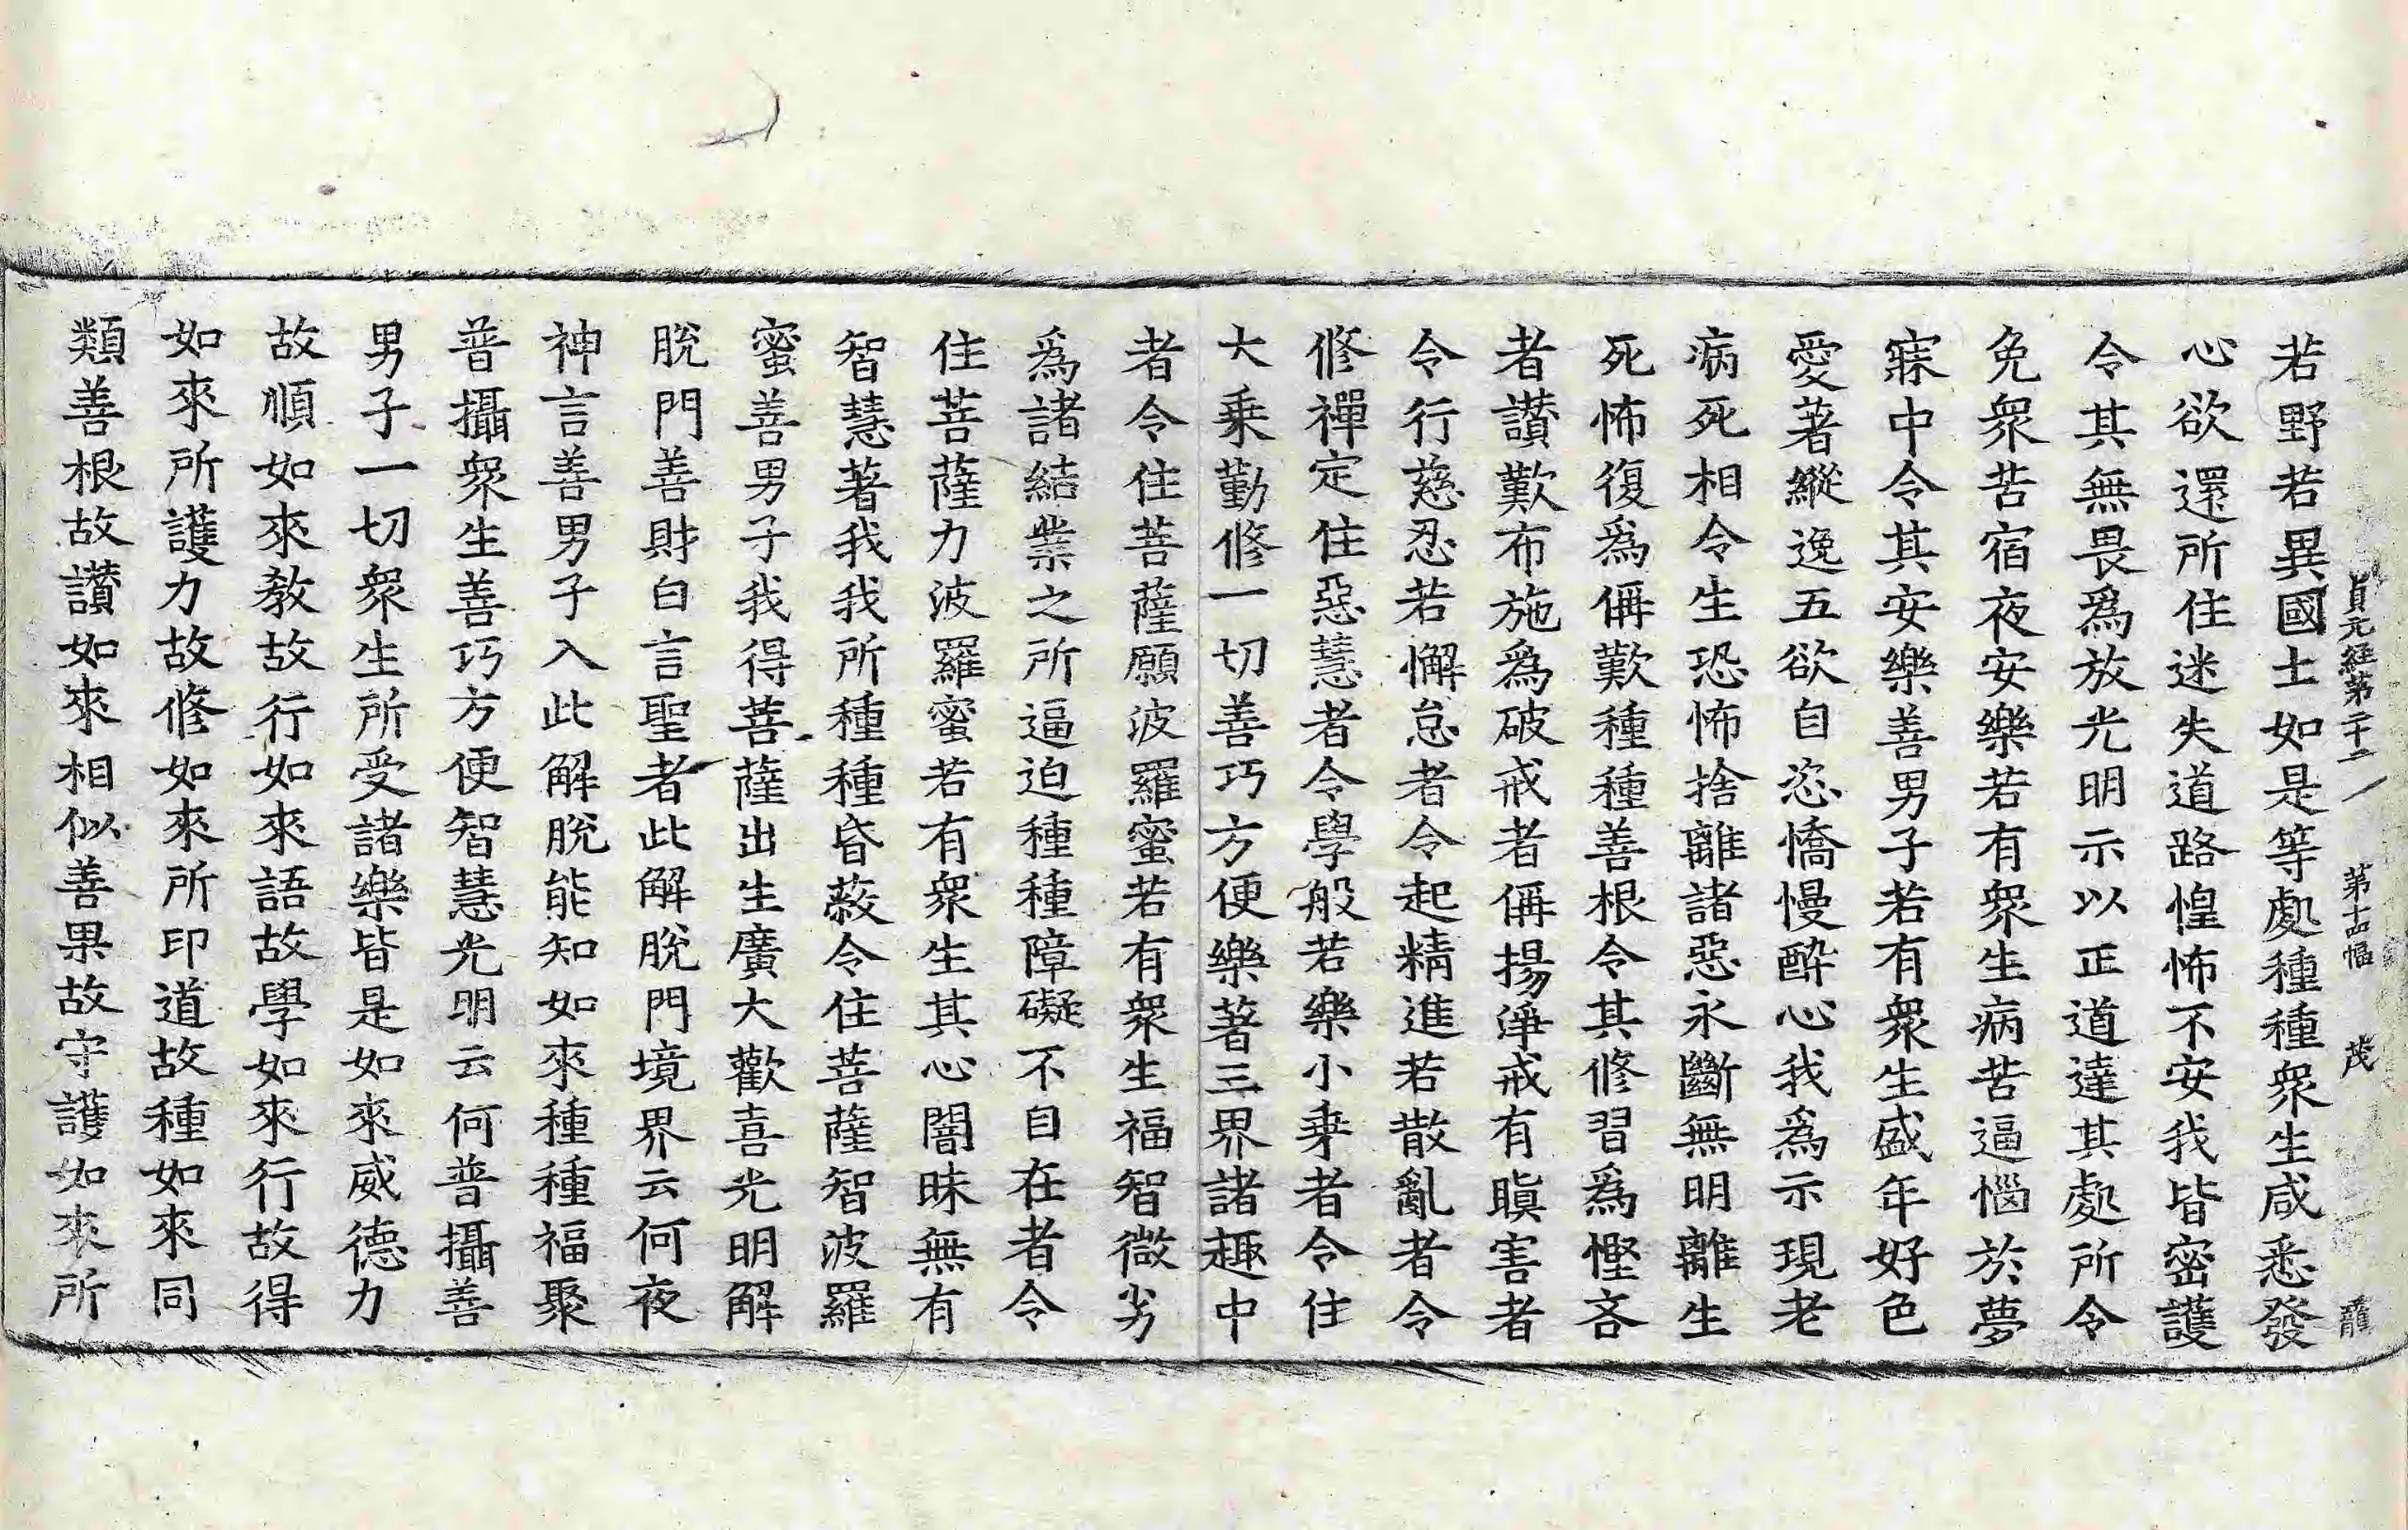 貞元經第二十二 第十四幅 茂 龍
若野若異國土如是等處種種衆生咸悉發
心欲還所住迷失道路惶怖不安我皆密護
令其無畏爲放光明示以正道達其處所令
免衆苦宿夜安樂若有衆生病苦逼惱於夢
寐中令其安樂善男子若有衆生盛年好色
愛著縱逸五欲自恣憍慢醉心我爲示現老
病死相令生恐怖捨離諸惡永斷無明離生
死怖復爲偁歎種種善根令其修習爲慳吝
者讃歎布施爲破戒者偁揚淨戒有瞋害者
令行慈忍若懈怠者令起精進若散亂者令
修禪定住惡慧者令學般若樂小乗者令住
大乗勤修一切善巧方便樂著三界諸趣中
者令住菩薩願波羅蜜若有衆生福智微劣
爲諸結業之所逼迫種種障礙不自在者令
住菩薩力波羅蜜若有衆生其心闇昧無有
智慧著我我所種種昏蔽令住菩薩智波羅
蜜善男子我得菩薩出生廣大歡喜光明解
脫門善財白言聖者此解脫門境界云何夜
神言善男子入此解脫能知如來種種福聚
普攝衆生善巧方便智慧光明云何普攝善
男子一切衆生所受諸樂皆是如來威德力
故順如來教故行如來語故學如來行故得
如來所護力故修如來所印道故種如來同
類善根故讃如來相似善果故守護如來所